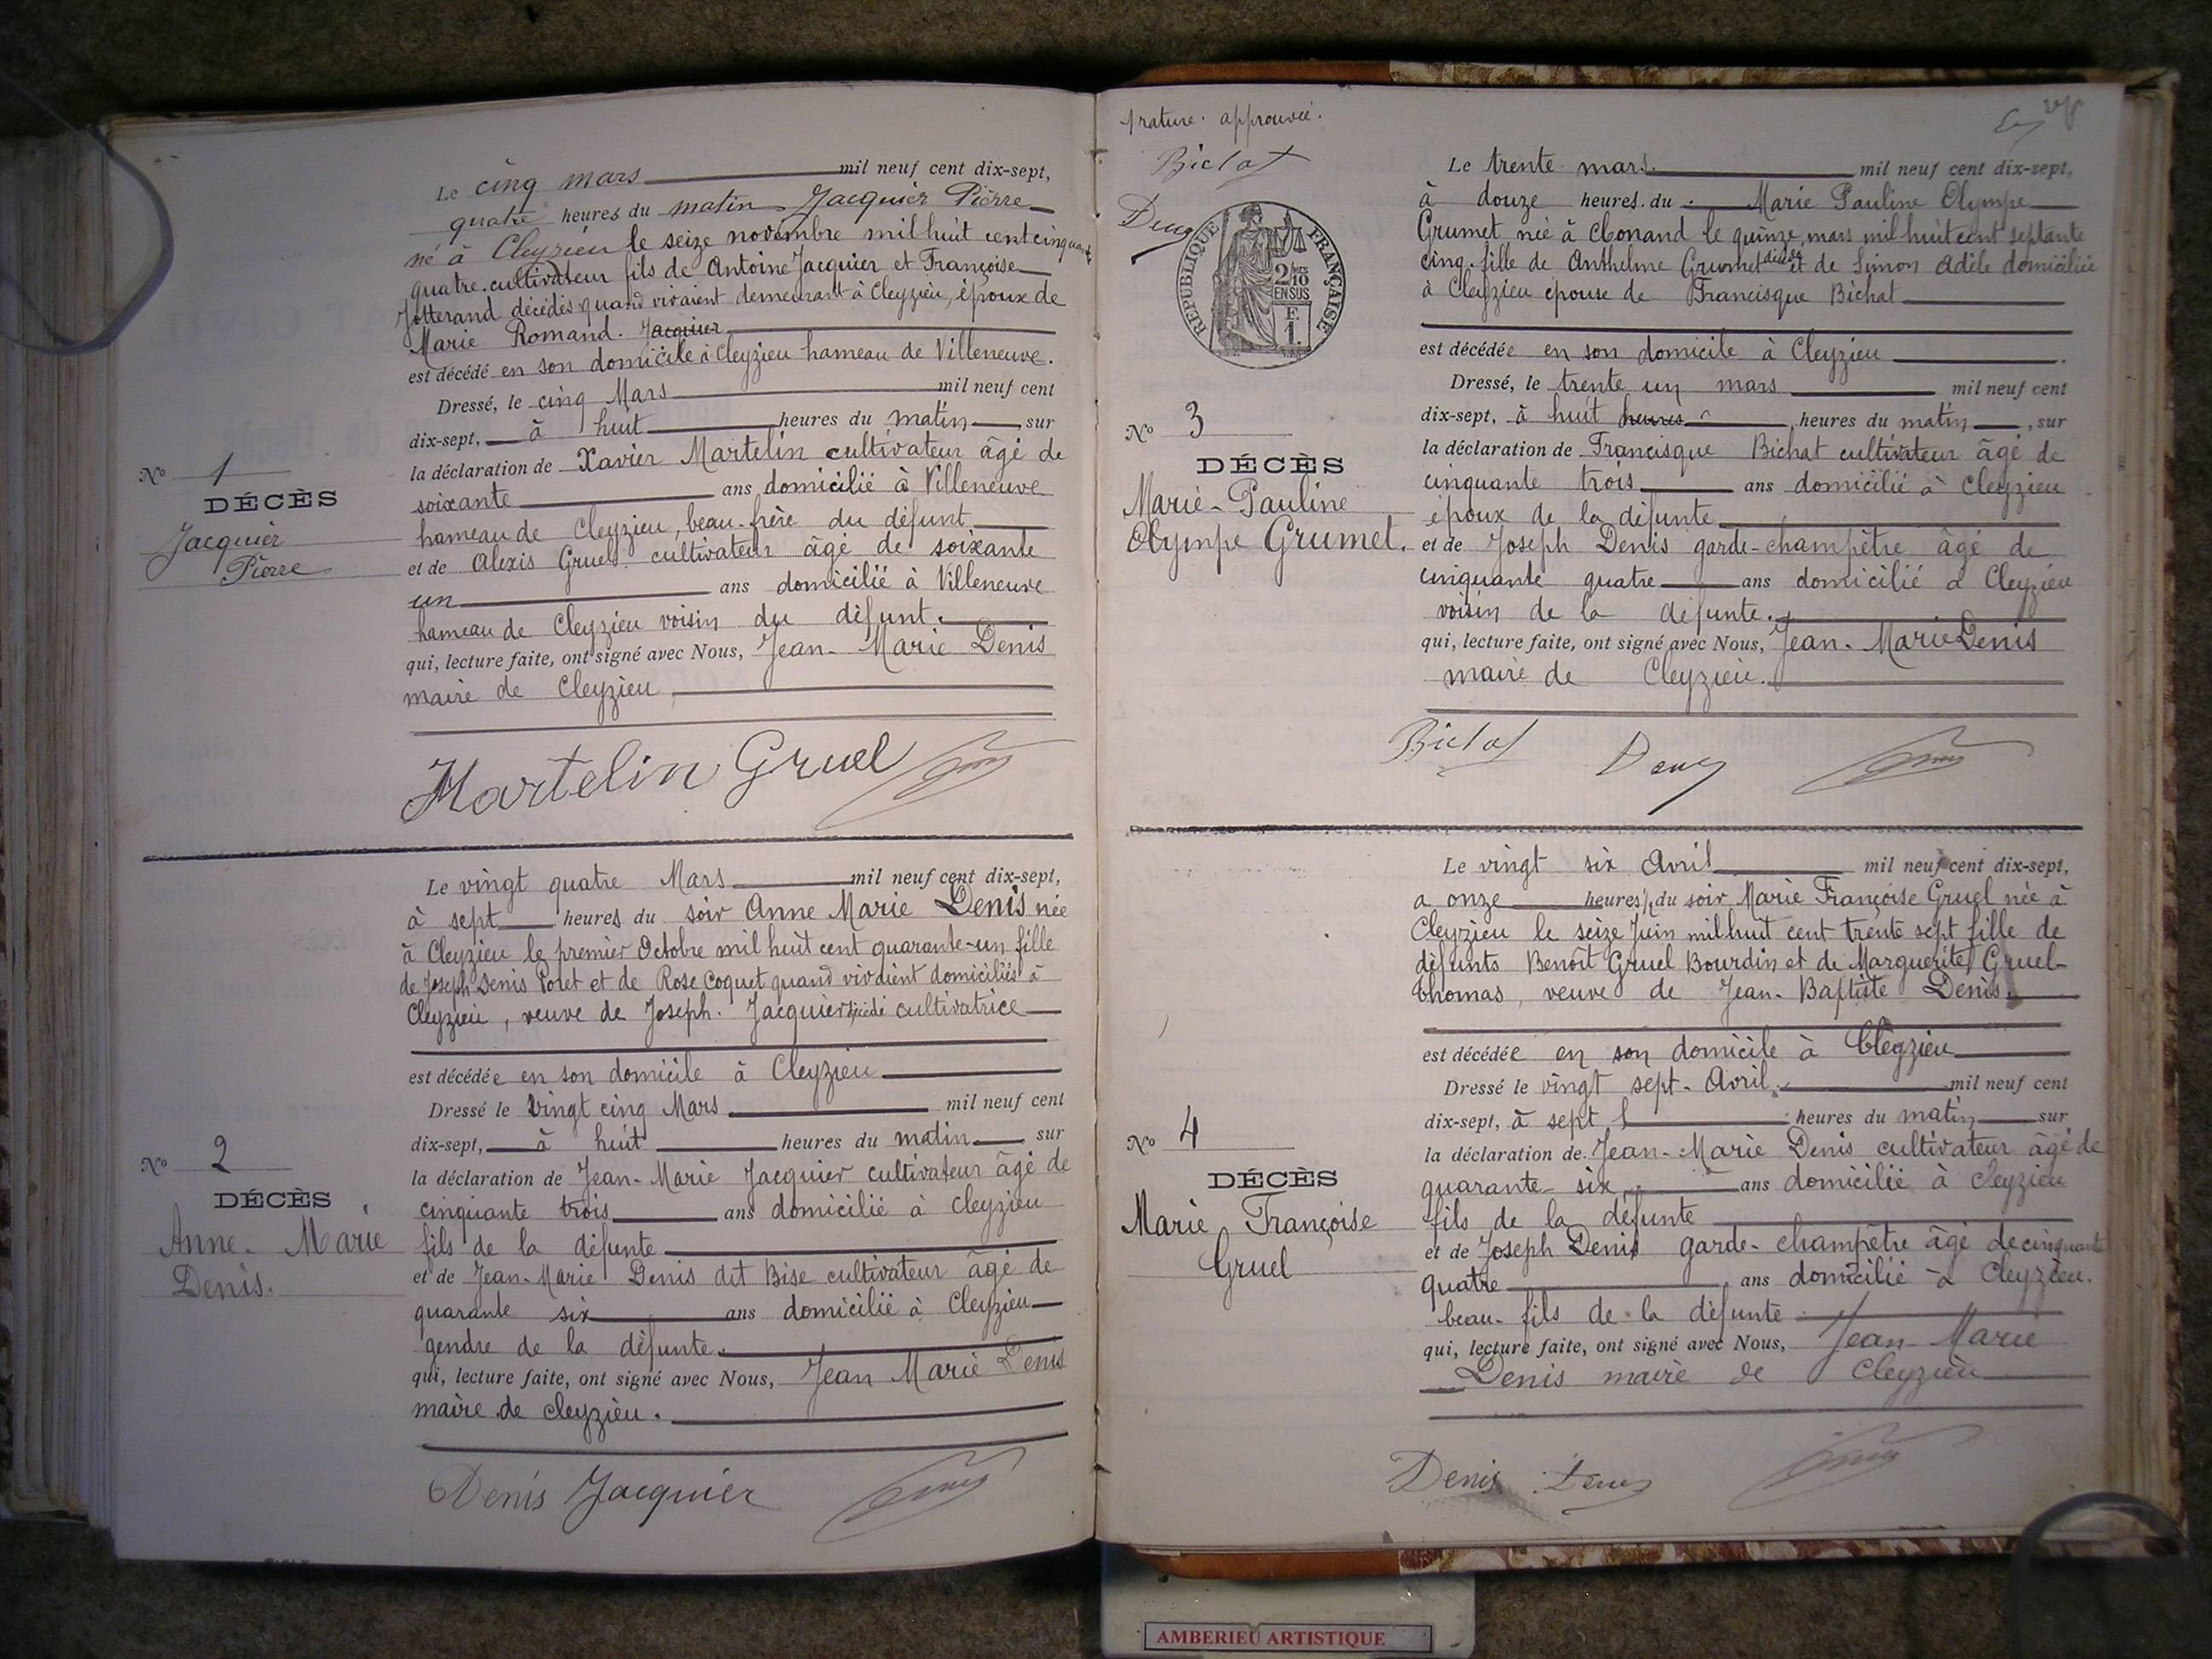 Le cinq mars mil neuf cent dix-sept,
quatre heures du matin Jacquier Pierre
né à Cleyzieu le seize novembre mil huit cent cinquante
quatre. cultivateur fils de Antoine Jacquier et Françoise
Jotterand décédés quand vivaient demeurant à Cleyzieu, époux de
Marie Romand. Jacquier
est décédé en son domicile à Cleyzieu hameau de Villeneuve.
Dressé, le cinq Mars mil neuf cent
dix-sept, à huit heures du matin, sur
la déclaration de Xavier Martelin cultivateur âgé de
soixante ans domicilié à Villeneuve
hameau de Cleyzieu, beau-frère du défunt
et de Alexis Gruel cultivateur âgé de soixante
un ans domicilié à Villeneuve
hameau de Cleyzieu voisin du défunt.
qui, lecture faite, ont signé avec Nous, Jean-Marie Denis
maire de Cleyzieu
Martelin Gruel
No 1
DÉCÈS
Jacquier
Pierre
Le vingt quatre Mars mil neuf cent dix-sept,
à sept heures du soir Anne Marie Denis née
à Cleyzieu le premier Octobre mil huit cent quarante-un fille
de Joseph Denis Poret et de Rose Coquet quand vivaient domiciliés à
Cleyzieu, veuve de Joseph. Jacquier décédé cultivatrice
est décédée en son domicile à Cleyzieu
Dressé le Vingt cinq Mars mil neuf cent
dix-sept, à huit heures du matin, sur
la déclaration de Jean-Marie Jacquier cultivateur âgé de
cinquante trois ans domicilié à Cleyzieu
fils de la défunte
et de Jean-Marie Denis dit Bise cultivateur âgé de
quarante six ans domicilié à Cleyzieu
gendre de la défunte.
qui, lecture faite, ont signé avec Nous, Jean Marie Denis
maire de Cleyzieu.
Denis Jacquier
No 2
DÉCÈS
Anne-Marie
Denis.
1 rature approuvée.
Bichat
Denis
RÉPUBLIQUE FRANÇAISE
2/10
EN SUS
F.
1.
Le trente mars. mil neuf cent dix-sept,
à douze heures. du . Marie Pauline Olympe
Grumet née à Conand le quinze mars mil huit cent septante
cinq. fille de Anthelme Grumet décédé et de Simon Adèle domiciliée
à Cleyzieu épouse de Francisque Bichat
est décédée en son domicile à Cleyzieu.
Dressé, le trente un mars mil neuf cent
dix-sept, à huit heures heures du matin, sur
la déclaration de Francisque Bichat cultivateur âgé de
cinquante trois ans domicilié à Cleyzieu
époux de la défunte
et de Joseph Denis garde-champêtre âgé de
cinquante quatre ans domicilié à Cleyzieu
voisin de la défunte.
qui, lecture faite, ont signé avec Nous, Jean-Marie Denis
maire de Cleyzieu.
Bichat Denis
No 3
DÉCÈS
Marie-Pauline
Olympe Grumet.
Le vingt six Avril mil neuf cent dix-sept,
a onze heures du soir Marie Françoise Gruel née à
Cleyzieu le seize Juin mil huit cent trente sept fille de
défunts Benoît Gruel Bourdin et de Marguerite Gruel
Thomas, veuve de Jean-Baptiste Denis.
est décédée en son domicile à Cleyzieu
Dressé le vingt sept-Avril. mil neuf cent
dix-sept, à sept heures du matin sur
la déclaration de Jean-Marie Denis cultivateur âgé de
quarante-six ans domicilié à Cleyzieu
fils de la défunte
et de Joseph Denis garde-champêtre âgé de cinquante
quatre ans domicilié à Cleyzieu.
beau-fils de la défunte
qui, lecture faite, ont signé avec Nous, Jean-Marie
Denis maire de Cleyzieu
Denis Denis
No 4
DÉCÈS
Marie Françoise
Gruel
AMBERIEU ARTISTIQUE